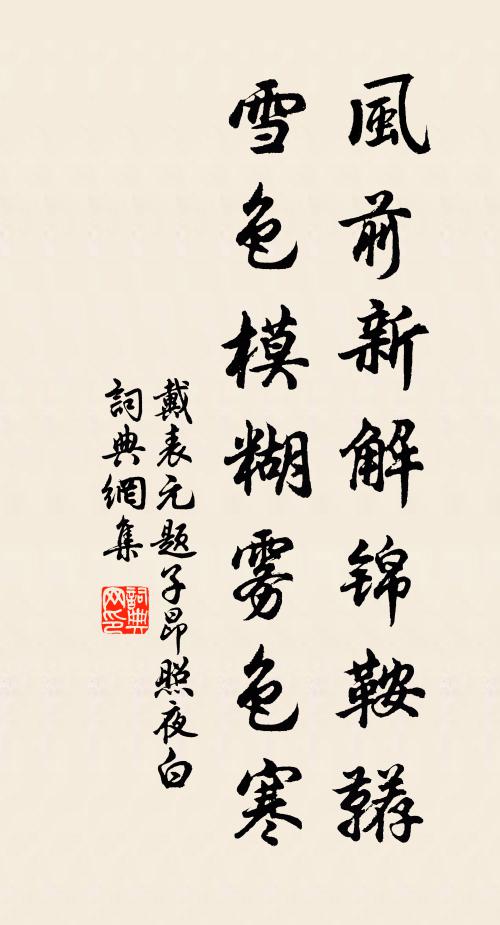 風前新解锦鞍韉
雪色模糊雾色寒
戴表元题子昂照夜白
詞典網集
詞典网印